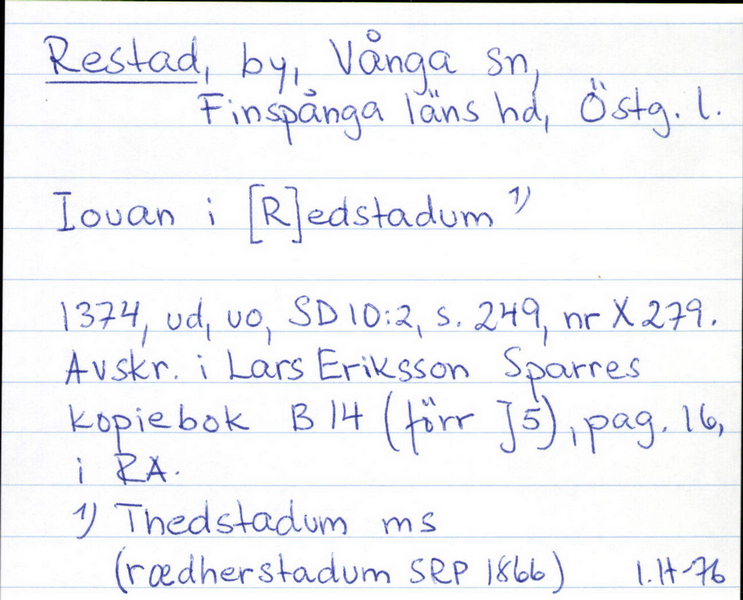 Restad, by, Vånga sn,
Finspånga läns hd, Östg. l.
Iouan i [R]edstadum 1)
1374, ud, uo, SD 10:2, s. 249, nr X 279.
Avskr. i Lars Eriksson Sparres
kopiebok B 14 (förr J 5), pag. 16,
i RA.
1) Thedstadum ms
(rædherstadum SRP 1866) I.H-76